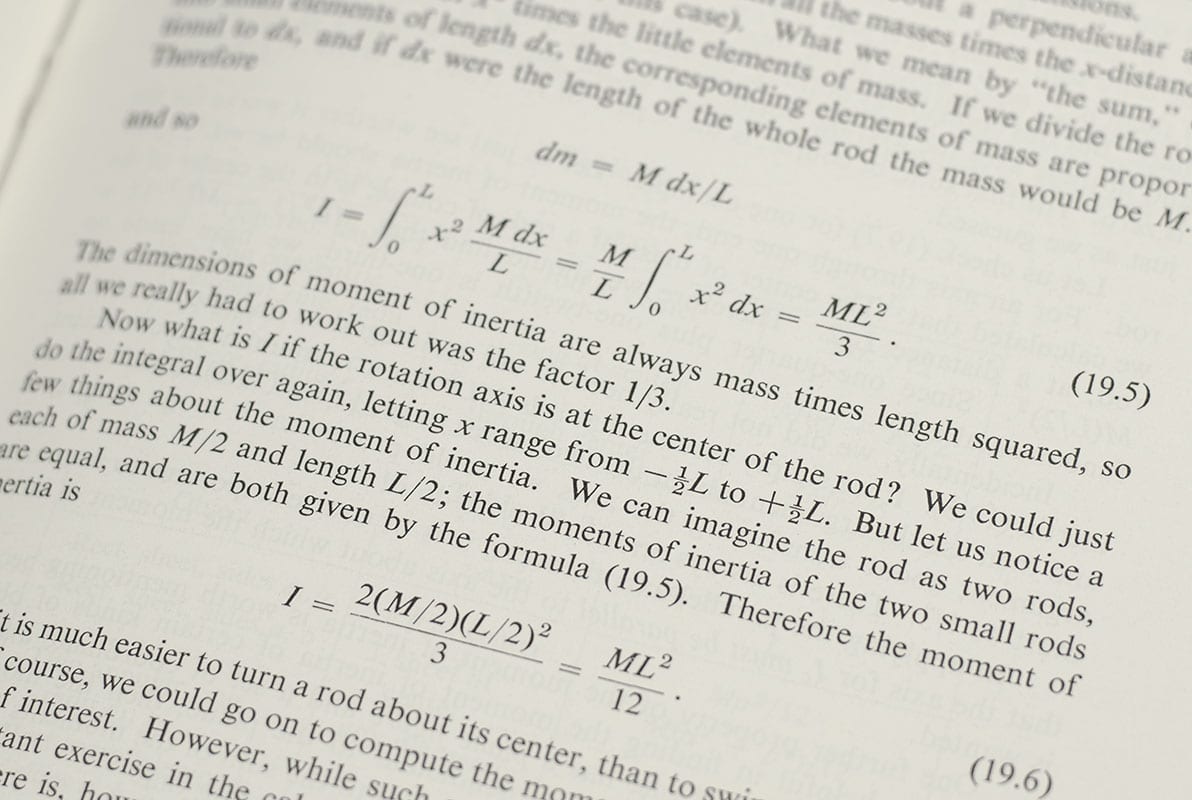 a perpendicular
this case). What we mean by “the sum,”
all the masses times the x-distanc
times the little elements of mass. If we divide the ro
elements of length dx, the corresponding elements of mass are propor
tional to dx, and if dx were the length of the whole rod the mass would be M.
Therefore
dm = M dx/L
and so
I = ∫₀ᴸ x² M dx/L = M/L ∫₀ᴸ x² dx = ML²/3 . (19.5)
The dimensions of moment of inertia are always mass times length squared, so
all we really had to work out was the factor 1/3.
Now what is I if the rotation axis is at the center of the rod? We could just
do the integral over again, letting x range from −½L to +½L. But let us notice a
few things about the moment of inertia. We can imagine the rod as two rods,
each of mass M/2 and length L/2; the moments of inertia of the two small rods
are equal, and are both given by the formula (19.5). Therefore the moment of
nertia is
I = 2(M/2)(L/2)²/3 = ML²/12 . (19.6)
t is much easier to turn a rod about its center, than to swi
course, we could go on to compute the mom
f interest. However, while such
tant exercise in the
ere is, how